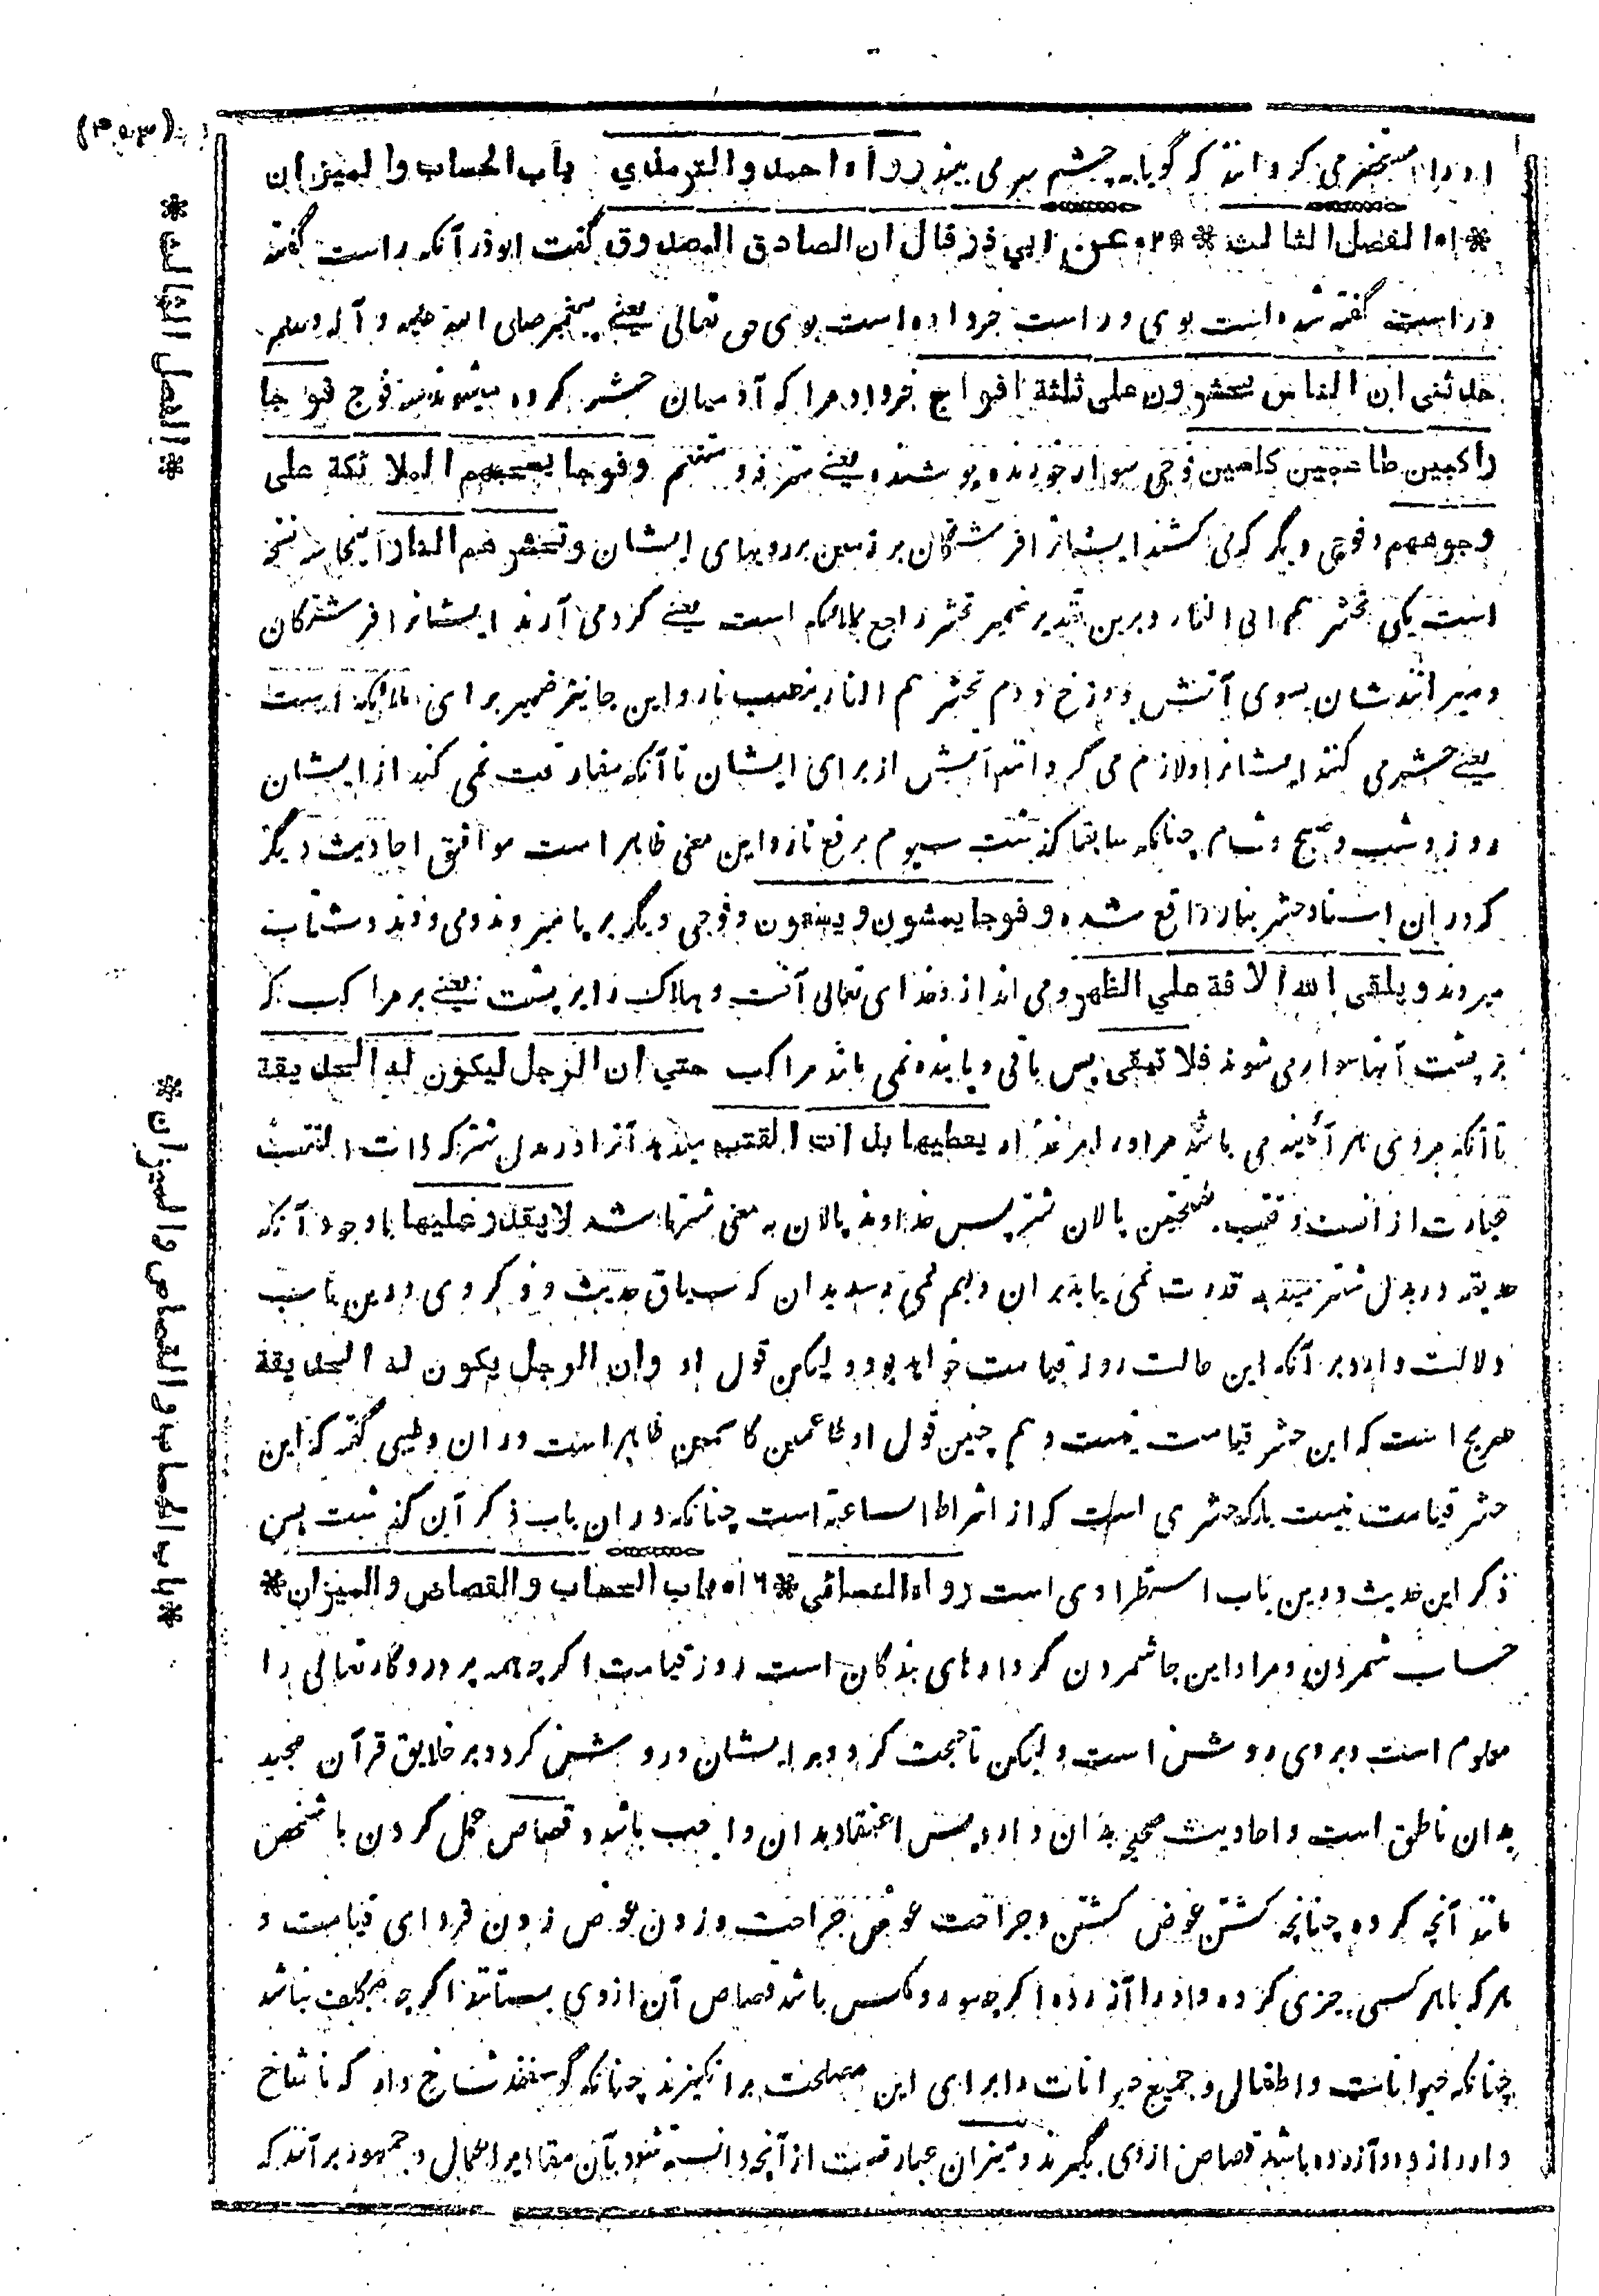 او را مستحضر می گرداند که گویا به چشم سر می بیند رواه احمد والترمذي باب الحساب والميزان
* الفصل الثالث * عن ابي ذر قال ان الصادق المصدوق گفت ابوذر آنکه راست گفته
و راست گفته شده است بوی و راست خبر داده است بوی حق تعالی یعنی پیغمبر صلی الله علیه و آله وسلم
حدثني ان الناس يحشرون على ثلثة افواج خبر داد مرا که آدمیان حشر کرده میشوند سه فوج فوجا
راكبين طاعمين كاسين فوجی سوار خورنده پوشنده یعنی متمتع و متنعم و فوجا يسحبهم الملائكة على
وجوههم و فوجی دیگر که می کشند ایشانرا فرشتگان بر زمین بر رویهای ایشان و تحشرهم النار اینجا سه نسخه
است یکی تحشرهم الی النار و برین تقدیر ضمیر تحشر راجع بملائکه است یعنی گرد می آرند ایشانرا فرشتگان
و میرانند شان بسوی آتش دوزخ دوم تحشرهم النار بنصب نار و این جا نیز ضمیر برای ملائکه است
یعنی حشر می کنند ایشانرا و لازم می گردانند آتش از برای ایشان تا آنکه مفارقت نمی کند از ایشان
روز و شب و صبح و شام چنانکه سابقا گذشت سیوم برفع نار و این معنی ظاهر است موافق احادیث دیگر
که در ان اسناد حشر بنار واقع شده و فوجا يمشون ويسعون و فوجی دیگر بر پا میروند و می دوند و شتاب
میروند ويلقي الله الافة علي الظهر و می اندازد خدای تعالی آفت و هلاک را بر پشت یعنی بر مراکب که
بر پشت آنها سوار می شوند فلا تبقى پس باقی و پاینده نمی ماند مراکب حتي ان الرجل ليكون له الحديقة
تا آنکه مردی هر آئینه می باشد مر او را مرغزار يعطيها بذات القتب میدهد آنرا در بدل شتر که ذات القتب
عبارت از انست و قتب بفتحتین پالان شتر پس خداوند پالان به معنی شتر باشد لا يقدر عليها با وجود آنکه
حدیقه در بدل شتر میدهد قدرت نمی یابد بر ان و بهم نمی رسد بدان که سیاق حدیث و ذکر وی درین باب
دلالت دارد بر آنکه این حالت روز قیامت خواهد بود و لیکن قول او وان الرجل يكون له الحديقة
صریح است که این حشر قیامت نیست و هم چنین قول او طاعمین کاسین ظاهر است در ان و طیبی گفته که این
حشر قیامت نیست بلکه حشری است که از اشراط الساعة است چنانکه در ان باب ذکر آن گذشت پس
ذکر این حدیث درین باب استطرادی است رواه النسائي * باب الحساب والقصاص والميزان *
حساب شمردن و مراد این جا شمردن کردارهای بندگان است روز قیامت اگرچه همه پروردگار تعالی را
معلوم است و بروی روشن است و لیکن تا حجت گردد بر ایشان و روشن گردد بر خلایق قرآن مجید
بدان ناطق است و احادیث صحیح بدان وارد پس اعتقاد بدان واجب باشد و قصاص عمل کردن با شخص
مانند آنچه کرده چنانچه کشتن عوض کشتن و جراحت عوض جراحت و زدن عوض زدن فردای قیامت
هر که با هر کسی چیزی کرده و او را آزرده اگرچه مور و مگس باشد قصاص آن از وی بستانند اگرچه مکلف نباشد
چنانکه حیوانات و اطفال و جمیع حیوانات را برای این مصلحت برانگیزند چنانکه گوسفند شاخ دار که نا شاخ
دار را زده و آزرده باشد قصاص از وی بگیرند و میزان عبارتست از آنچه دانسته شود بآن مقادیر اعمال و جمهور برآنند که
* الفصل الثالث *
* باب الحساب والقصاص والميزان *